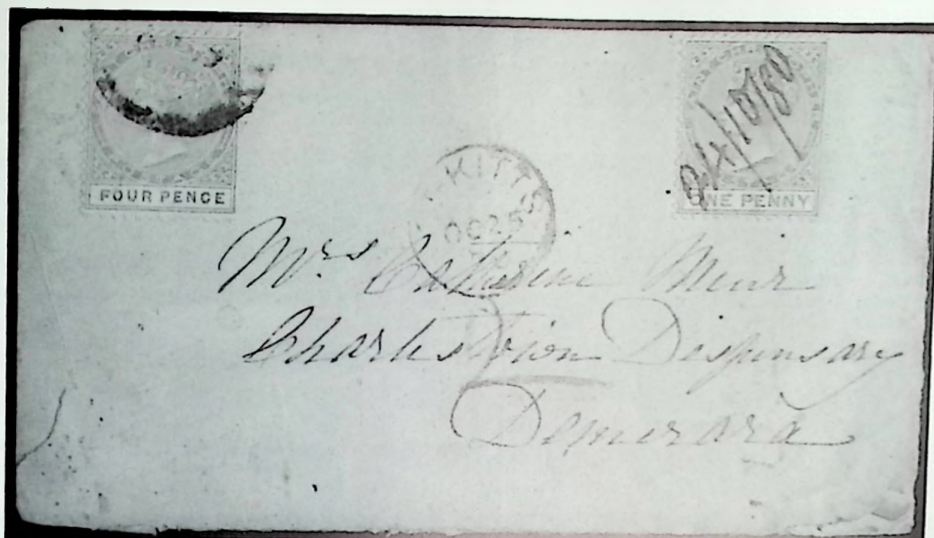 FOUR PENCE
24/10/80
ONE PENNY
KITTS
OC 25
Mrs Catherine Meir
Charlestown Dispensary
Demerara